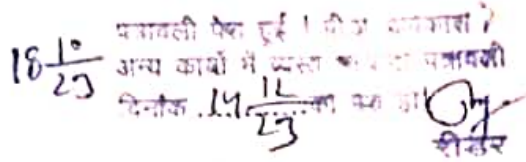 18 10/23 पत्रावली पेश हुई । पी.अ.
अन्य कार्यों में व्यस्त पत्रावली
दिनांक 14 12/23 को पेश हो
रीडर